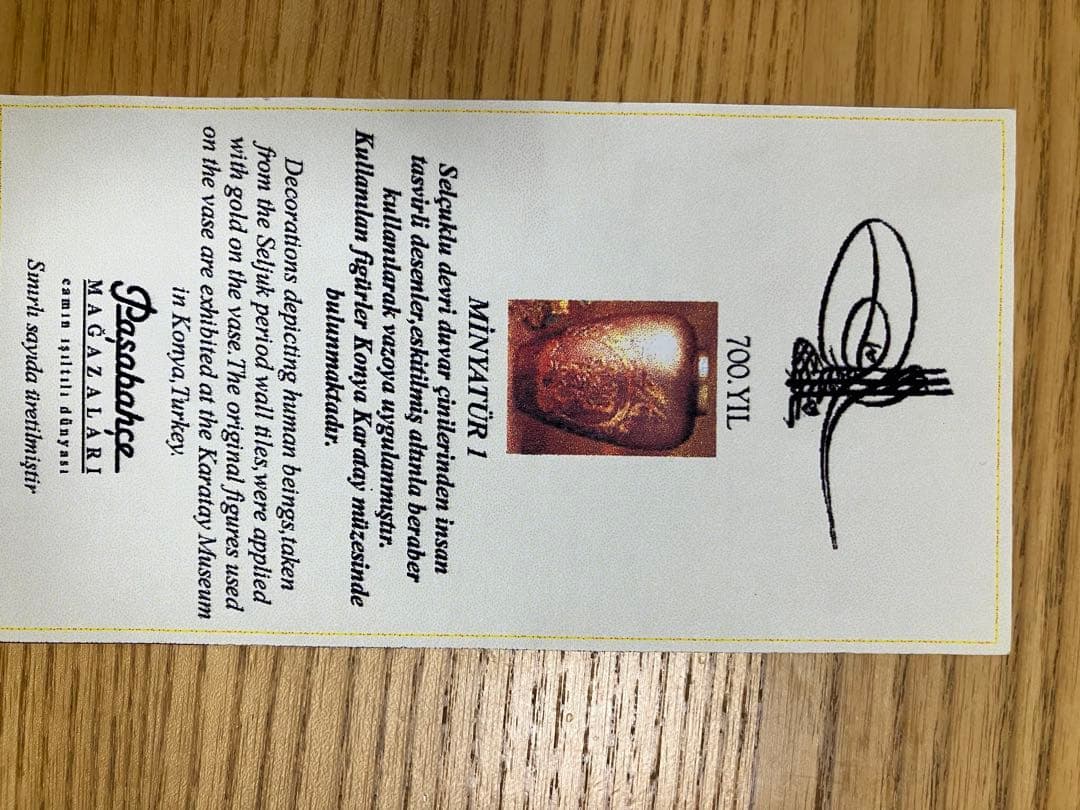 700.YIL
MİNYATÜR 1
Selçuklu devri duvar çinilerinden insan
tasvirli desenler,eskitilmiş altınla beraber
kullanılarak vazoya uygulanmıştır.
Kullanılan figürler Konya Karatay müzesinde
bulunmaktadır.
Decorations depicting human beings,taken
from the Seljuk period wall tiles,were applied
with gold on the vase.The original figures used
on the vase are exhibited at the Karatay Museum
in Konya,Turkey.
Paşabahçe
MAĞAZALARI
camın ışıltılı dünyası
Sınırlı sayıda üretilmiştir